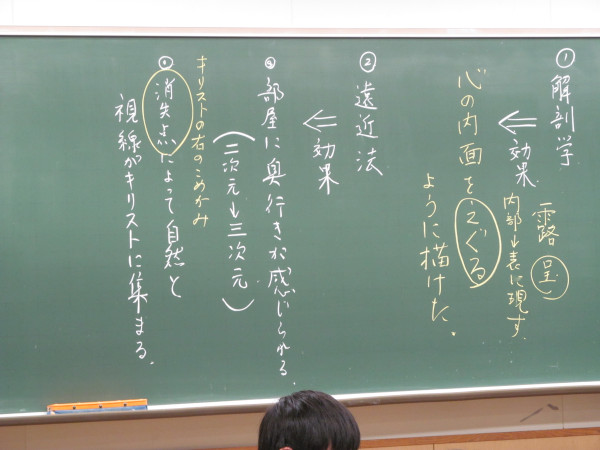 ① 解剖学
⇐ 効果
露呈
内部→表に現す……
心の内面をえぐる
ように描けた。
② 遠近法
⇐ 効果
㋐ 部屋に奥行きが感じられる。
(二次元→三次元)
キリストの右のこめかみ
消失点によって自然と
視線がキリストに集まる。